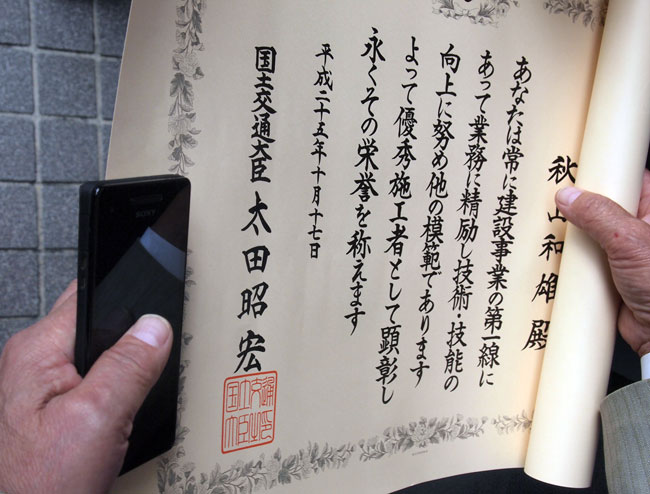 秋山和雄殿
あなたは常に建設事業の第一線に
あって業務に精励し技術・技能の
向上に努め他の模範であります
よって優秀施工者として顕彰し
永くその栄誉を称えます
平成二十五年十月十七日
国土交通大臣 太田昭宏
国土交通大臣之印
SONY